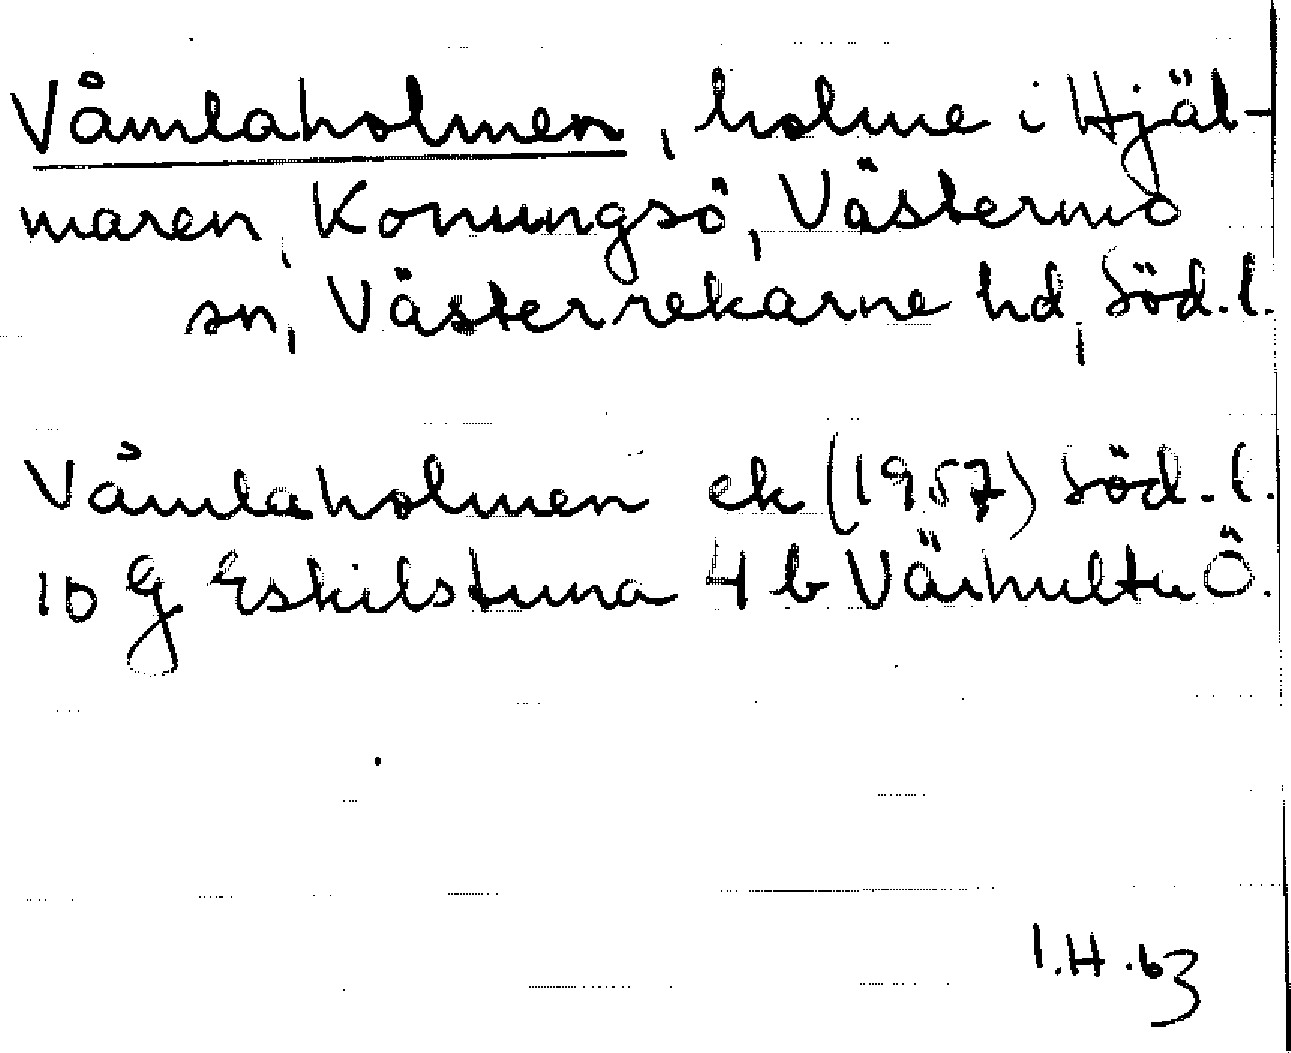 Våmlaholmen, holme i Hjäl-
maren, Konungsö, Västermo
sn, Västerrekarne hd, Söd. l.
Våmlaholmen ek (1957) Söd. l.
10 G Eskilstuna 4 b Värhulta Ö.
I.H. 63